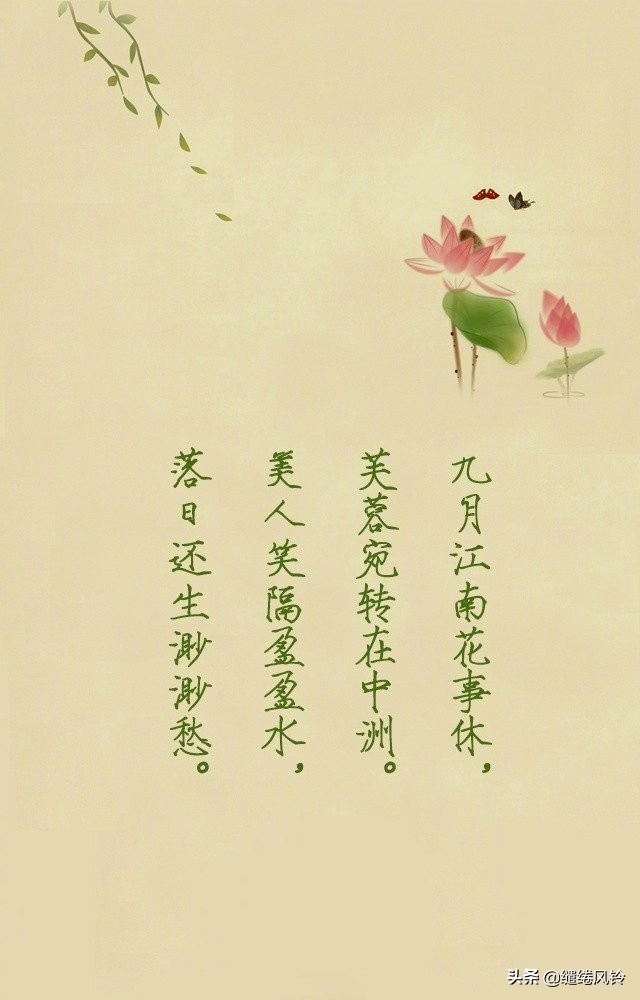 九月江南花事休，
芙蓉宛转在中洲。
美人笑隔盈盈水，
落日还生渺渺愁。
头条 @缱绻风铃